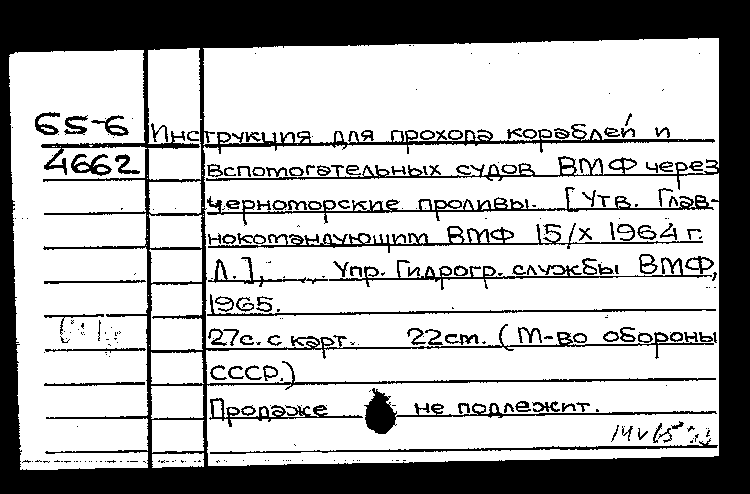 65-6
4662
Инструкция для прохода кораблей и
вспомогательных судов ВМФ через
черноморские проливы. [Утв. Глав-
нокомандующим ВМФ 15/X 1964 г.
Л.], Упр. Гидрогр. службы ВМФ,
1965.
27с. с карт. 22см. (М-во обороны
СССР.)
Продаже не подлежит.